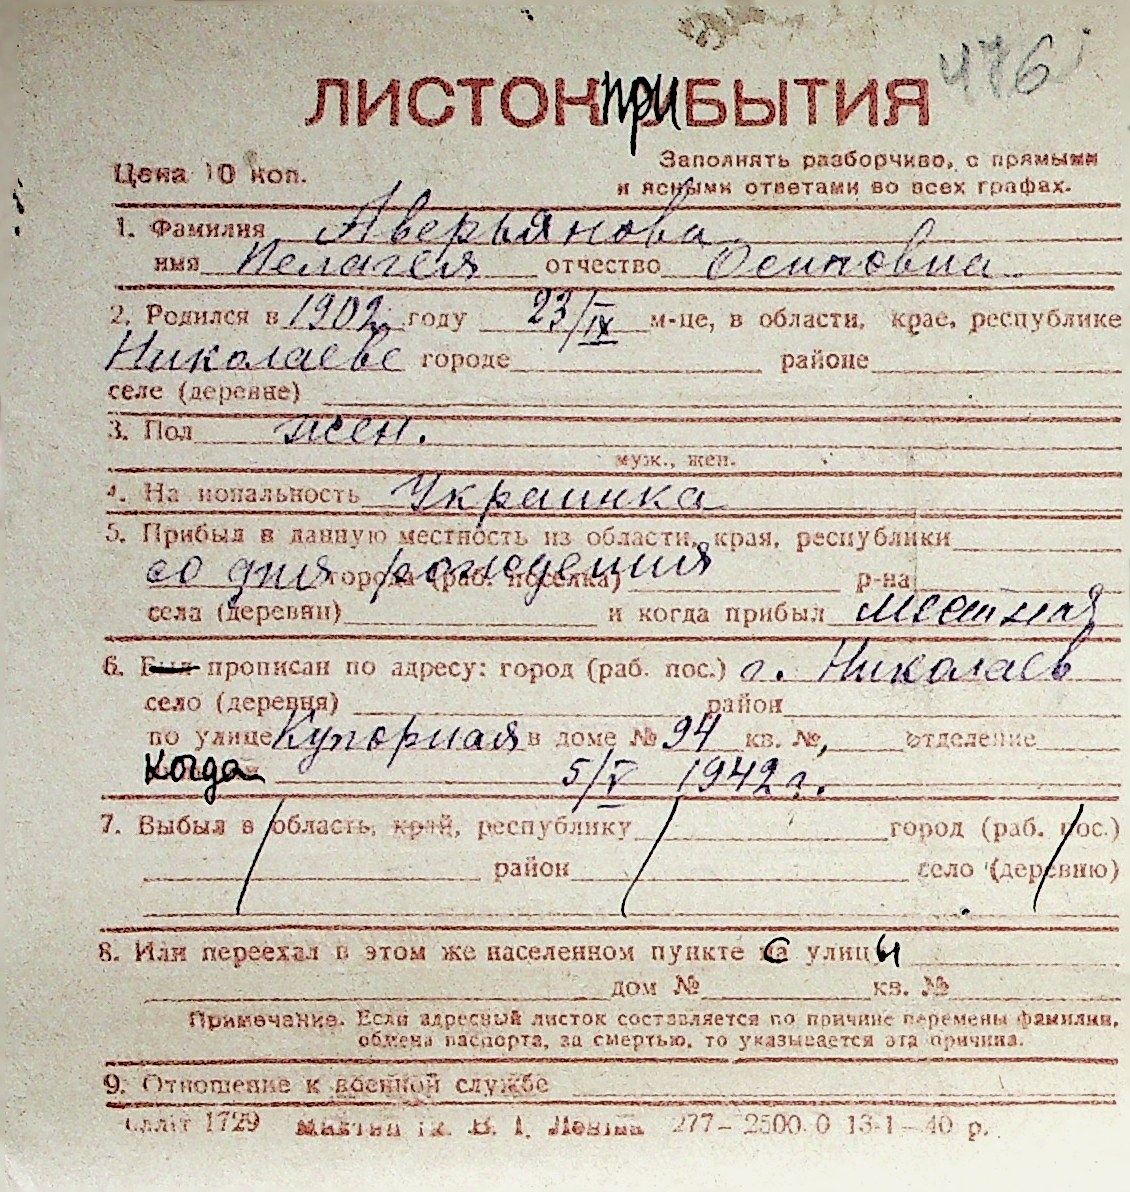 476
ЛИСТОК ПРИБЫТИЯ
Цена 10 коп.
Заполнять разборчиво, с прямыми
и ясными ответами во всех графах.
1. Фамилия Аверьянова
имя Пелагея отчество Осиповна
2. Родился в 1902 году 23/IX м-це, в области, крае, республике
Николаеве городе районе
селе (деревне)
3. Пол жен.
муж., жен.
4. На иональность Украинка
5. Прибыл в данную местность из области, края, республики
со дня рождения города (раб. поселка) р-на
села (деревни) и когда прибыл местная
6. Был прописан по адресу: город (раб. пос.) г. Николаев
село (деревня) район
по улице Купорная в доме № 94 кв. №, отделение
когда 5/V 1942 г.
7. Выбыл в область, край, республику город (раб. пос.)
район село (деревню)
8. Или переехал в этом же населенном пункте с улицы
дом № кв. №
Примечание. Если адресный листок составляется по причине перемены фамилии,
обмена паспорта, за смертью, то указывается эта причина.
9. Отношение к военной службе
1729 277—2500.0 13-1—40 р.